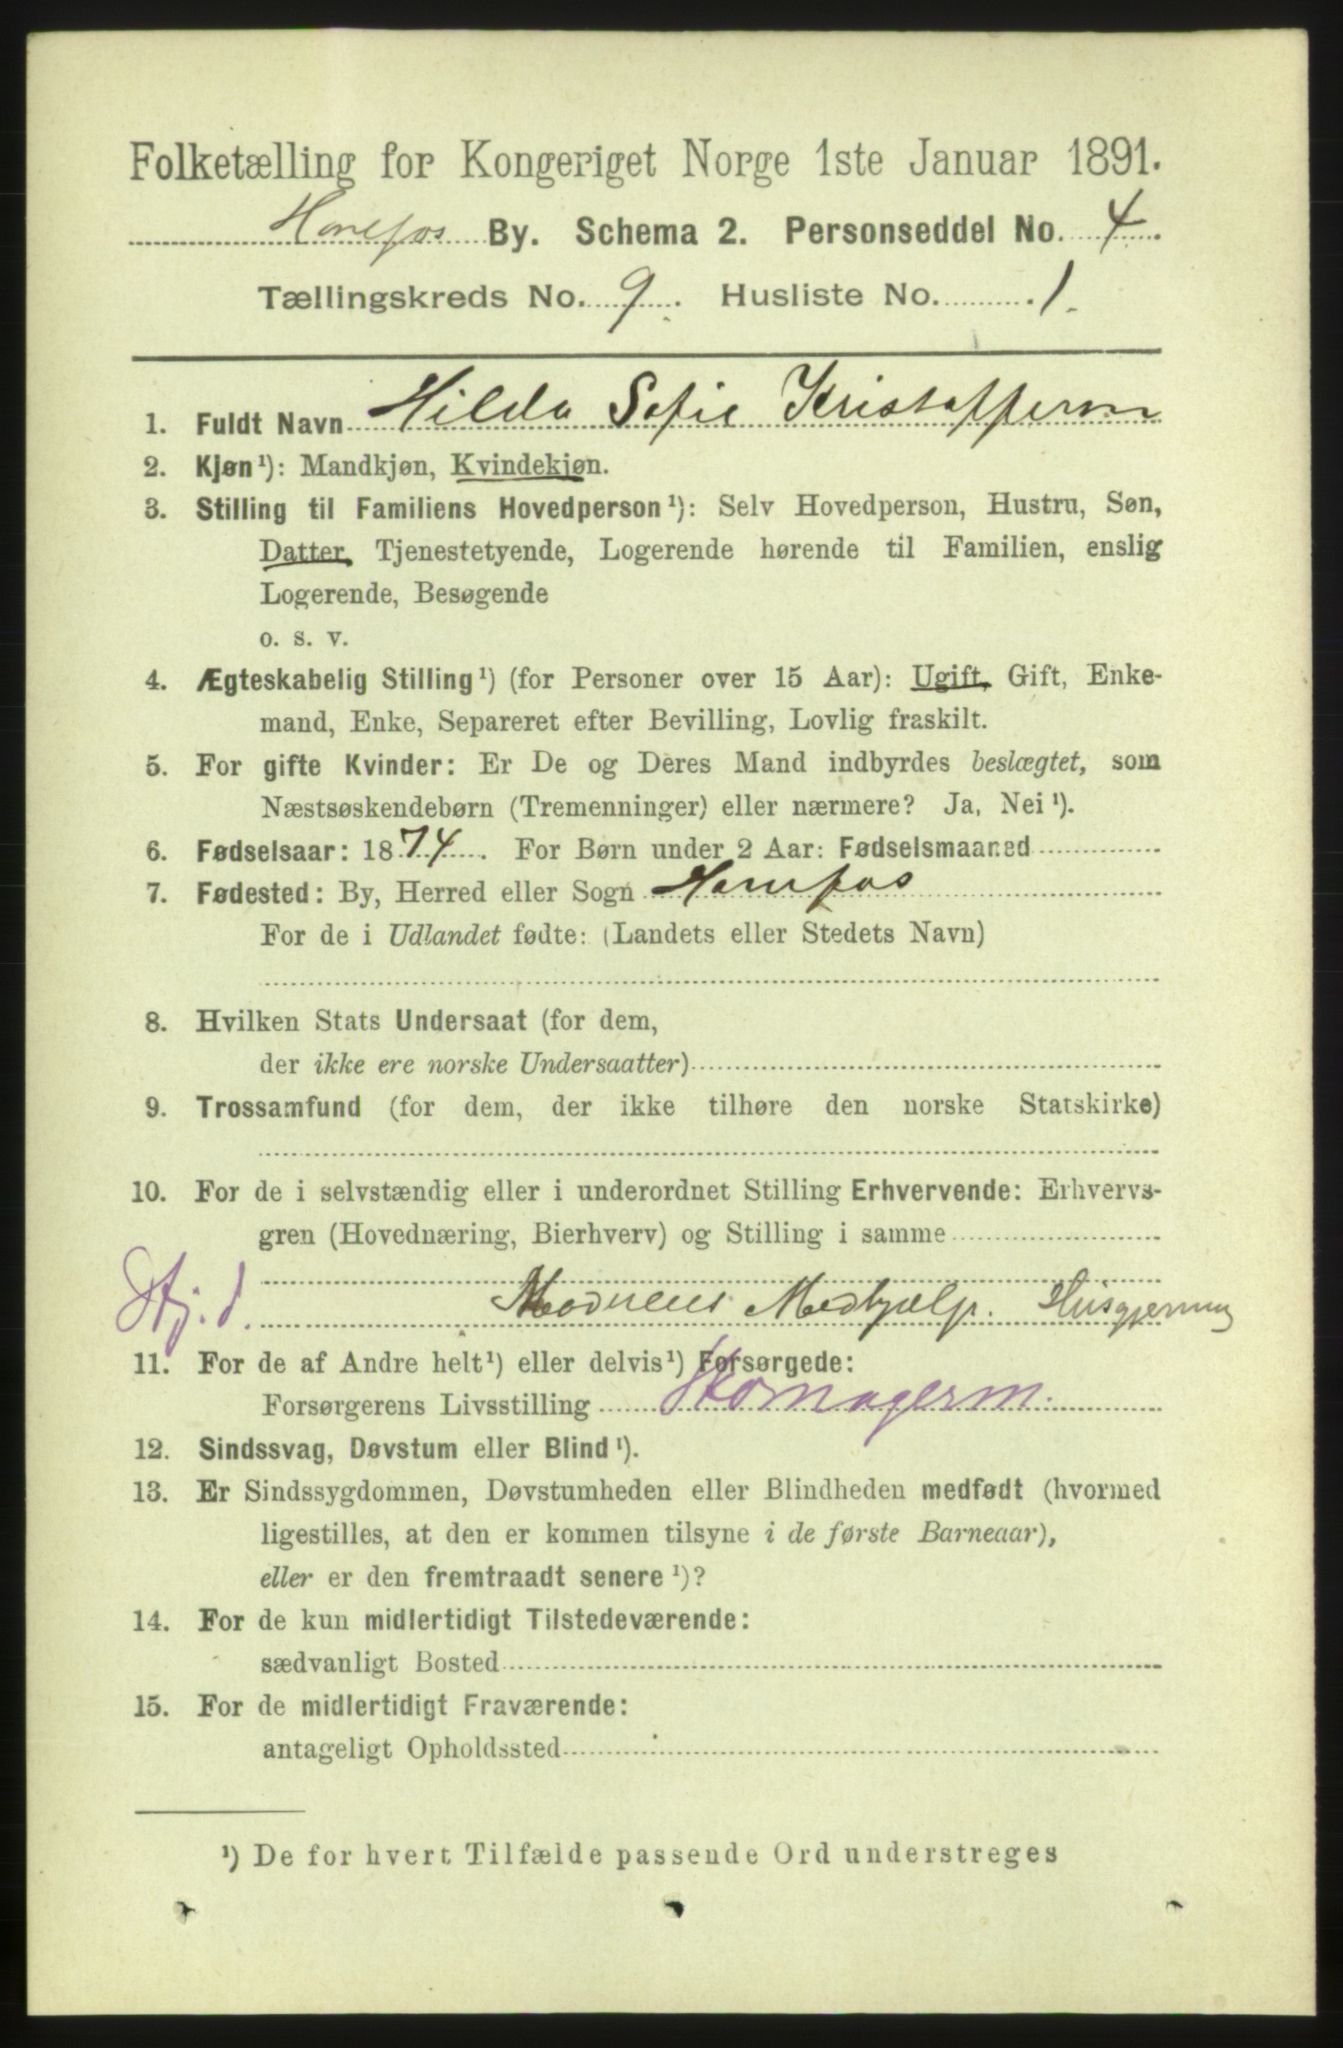 Folketælling for Kongeriget Norge 1ste Januar 1891.
Hønefos By. Schema 2. Personseddel No. 4.
Tællingskreds No. 9. Husliste No. 1.
1. Fuldt Navn Hilda Sofie Kristoffersen
2. Kjøn ¹): Mandkjøn, Kvindekjøn.
3. Stilling til Familiens Hovedperson ¹): Selv Hovedperson, Hustru, Søn,
Datter, Tjenestetyende, Logerende hørende til Familien, enslig
Logerende, Besøgende
o. s. v.
4. Ægteskabelig Stilling ¹) (for Personer over 15 Aar): Ugift, Gift, Enke-
mand, Enke, Separeret efter Bevilling, Lovlig fraskilt.
5. For gifte Kvinder: Er De og Deres Mand indbyrdes beslægtet, som
Næstsøskendebørn (Tremenninger) eller nærmere? Ja, Nei ¹).
6. Fødselsaar: 1874. For Børn under 2 Aar: Fødselsmaaned
7. Fødested: By, Herred eller Sogn Hønefos
For de i Udlandet fødte: (Landets eller Stedets Navn)
8. Hvilken Stats Undersaat (for dem,
der ikke ere norske Undersaatter)
9. Trossamfund (for dem, der ikke tilhøre den norske Statskirke)
10. For de i selvstændig eller i underordnet Stilling Erhvervende: Erhvervs-
gren (Hovednæring, Bierhverv) og Stilling i samme
Htj. d. Moderens Medhjælp. Husgjerning
11. For de af Andre helt ¹) eller delvis ¹) Forsørgede:
Forsørgerens Livsstilling Skomagerm.
12. Sindssvag, Døvstum eller Blind ¹).
13. Er Sindssygdommen, Døvstumheden eller Blindheden medfødt (hvormed
ligestilles, at den er kommen tilsyne i de første Barneaar),
eller er den fremtraadt senere ¹)?
14. For de kun midlertidigt Tilstedeværende:
sædvanligt Bosted
15. For de midlertidigt Fraværende:
antageligt Opholdssted
¹) De for hvert Tilfælde passende Ord understreges